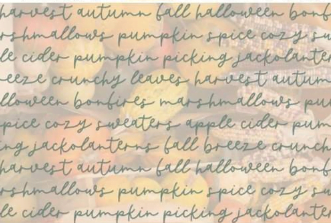 harvest autumn fall halloween bonf
rshmallows pumpkin spice cozy su
le cider pumpkin picking jackolanter
eeze crunchy leaves harvest autum
lloween bonfires marshmallows pu
spice cozy sweaters apple cider pum
ing jackolanterns fall breeze crunch
harvest autumn fall halloween bonf
rshmallows pumpkin spice cozy su
le cider pumpkin picking jackolant